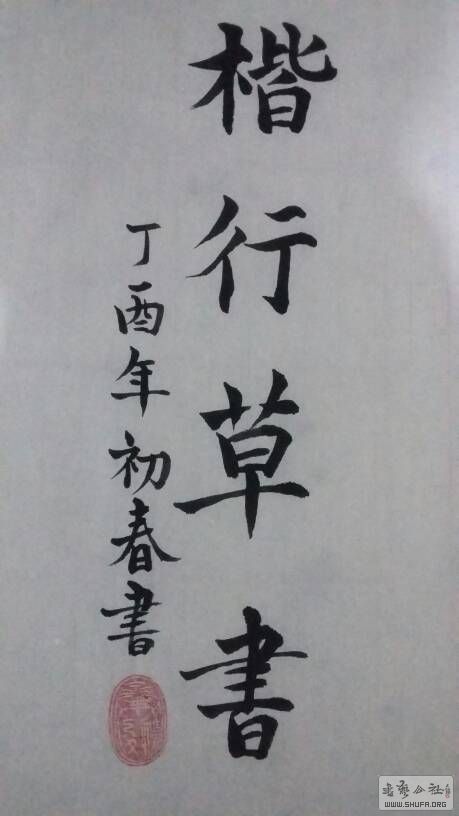 楷行草書
丁酉年初春書
WWW.SHUFA.ORG